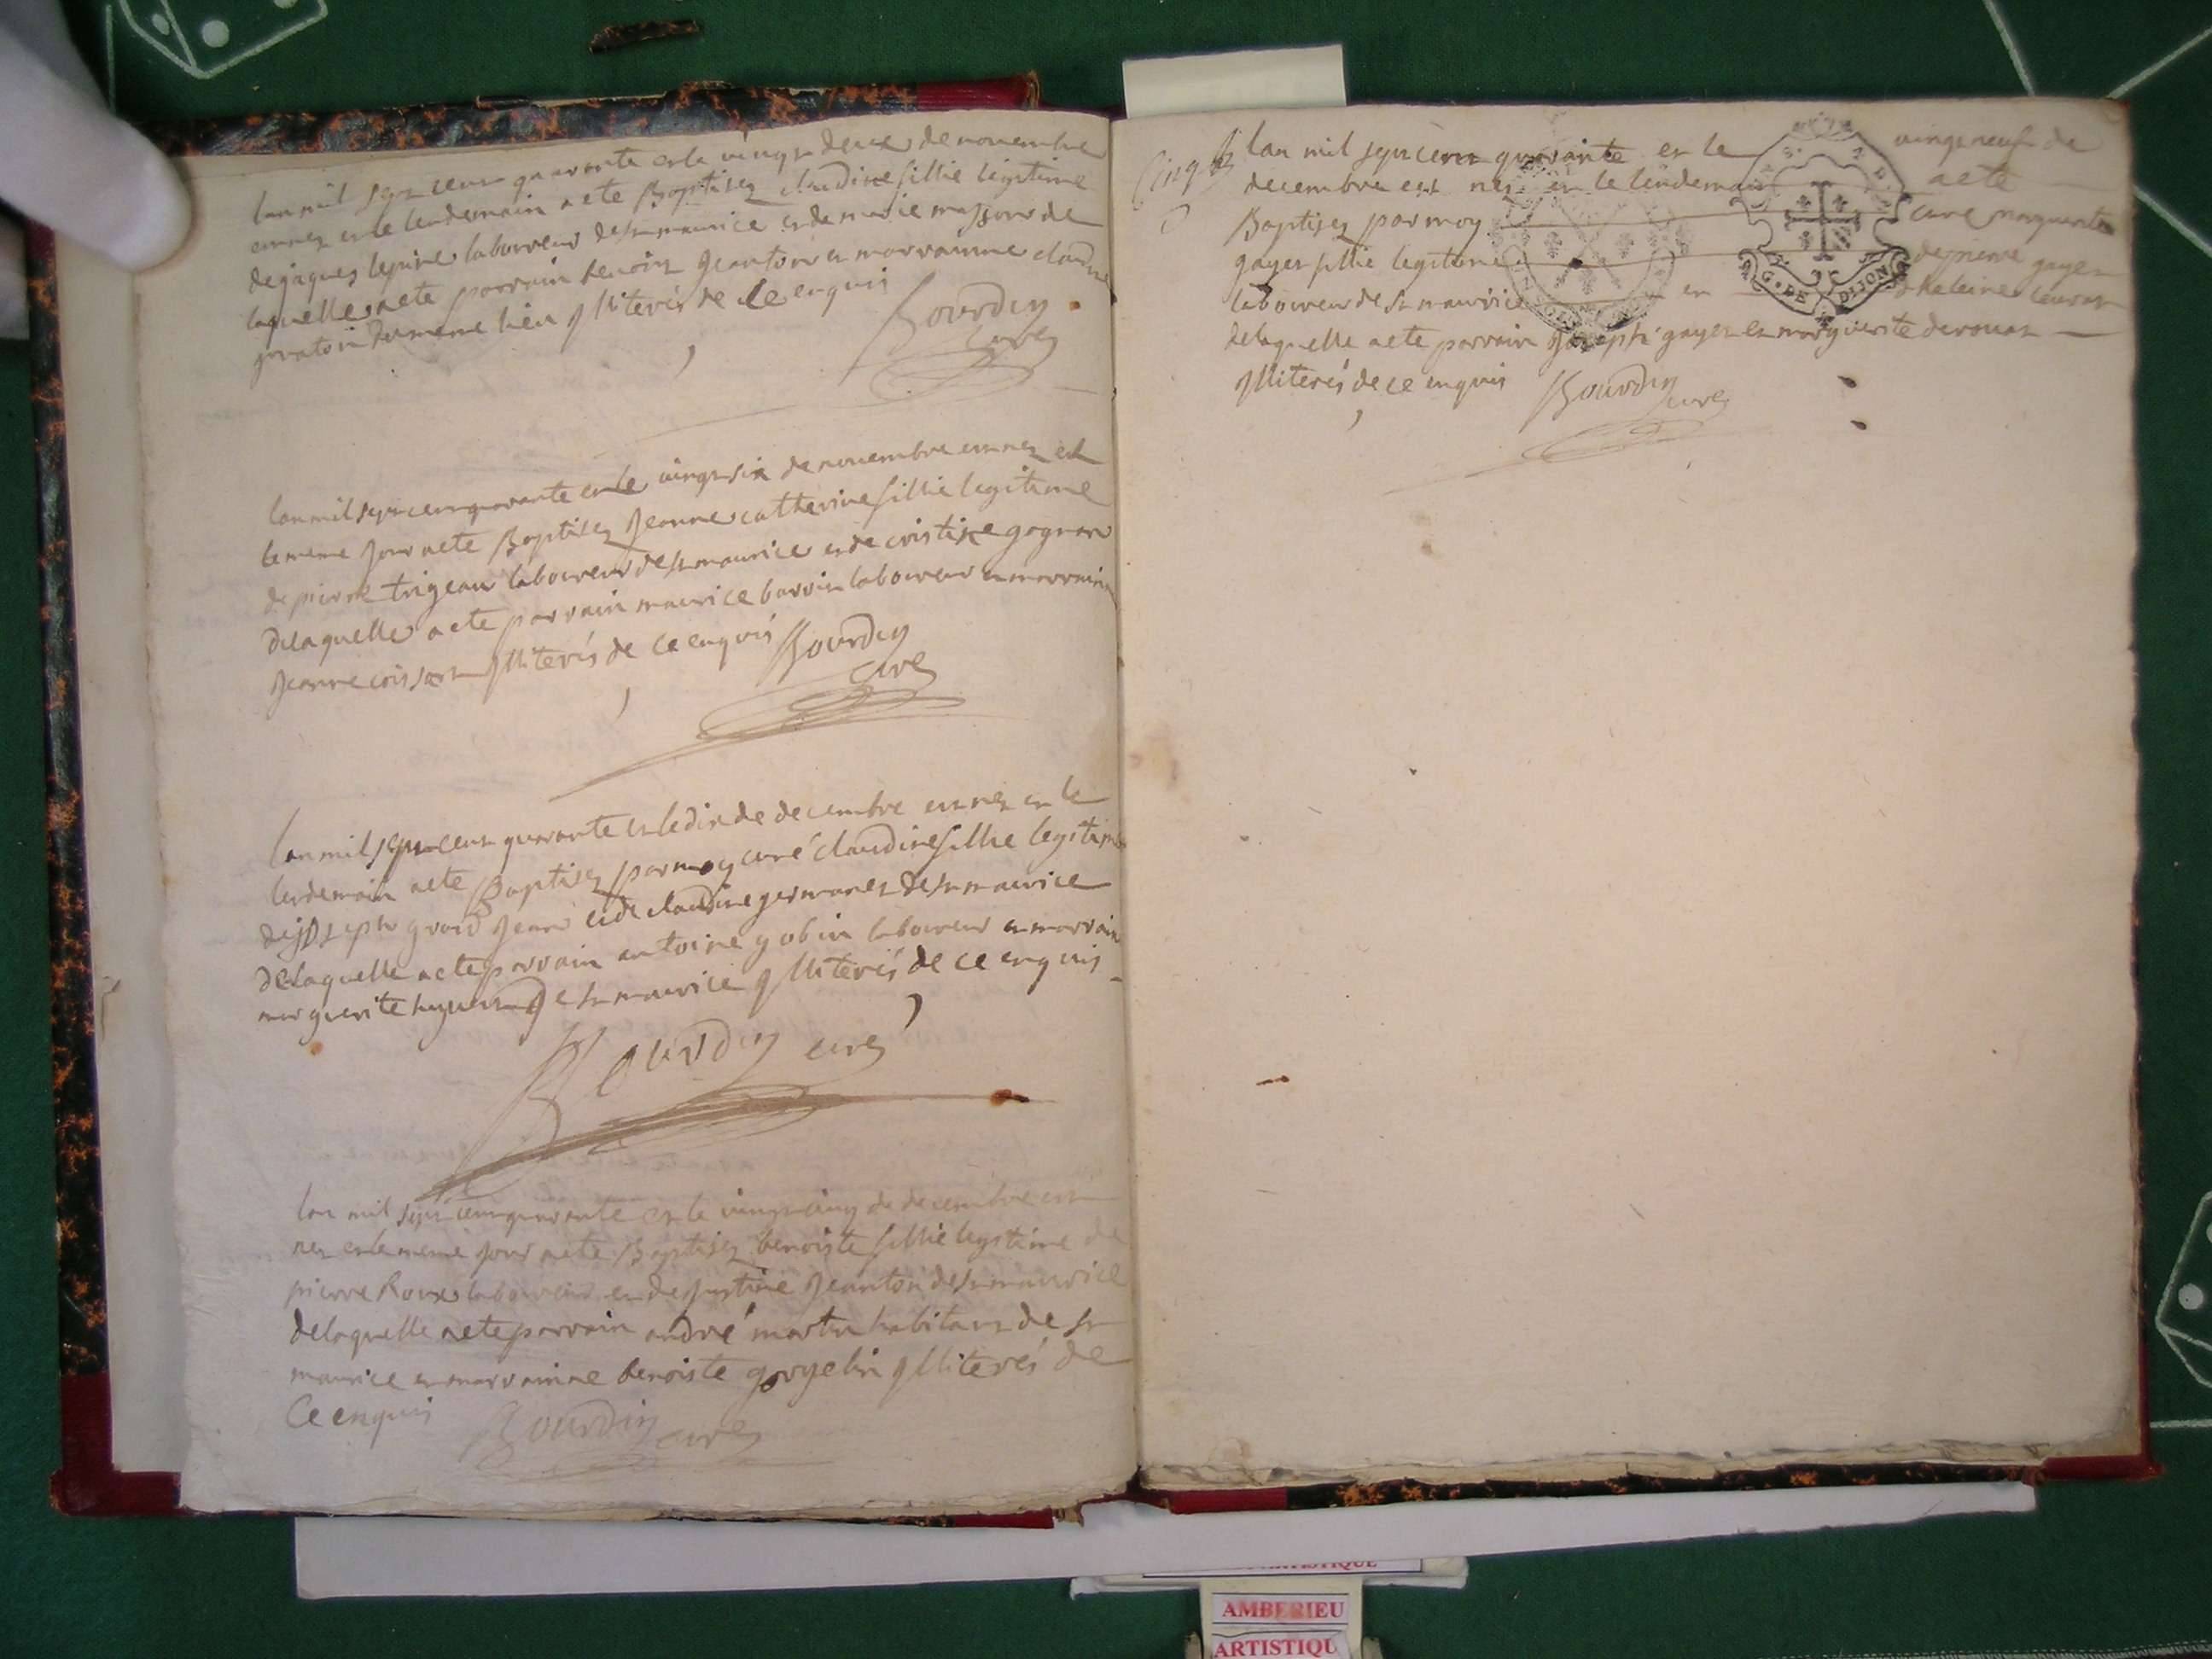 lan mil sept cens quarante et le vingt deux de novembre
est nez et le lendemain a ete Baptisez claudine fillie legitime
de jaques lepine laboureur de st maurice et de marie
laquelle a ete parrain benoist Jeanton et marrainne claudine
du meme lieu illiterés de ce enquis
Bourdin
curé
lan mil sept cens quarante et le vingt six de novembre est nez et
le meme jour a ete Baptisez Jeanne catherine fillie legitime
de pierre trigeau laboureur de st maurice et de cristine gagnard
de laquelle a ete parrain maurice laboureur et marraine
Jeanne illiterés de ce enquis Bourdin
curé
lan mil sept cens quarante et le dix de decembre est nez et le
lendemain a ete Baptisez par moy curé claudine fillie legitime
de joseph grand Jean et de claudine germanet de st maurice
de laquelle a ete parrain antoine gobin laboureur et marraine
marguerite de st maurice illiterés de ce enquis
Bourdin curé
lan mil sept cens quarante et le vingt cinq de decembre est
nez et le meme jour a ete Baptisez benoiste fillie legitime de
pierre Roux laboureur et de justine Jeanton de st maurice
de laquelle a ete parrain andré martin habitant de st
maurice et marrainne benoiste gorgelin illiterés de
Ce enquis
Bourdin curé
Cinq
lan mil sept cens quarante et le vingt neuf de
decembre est nez et le lendemain a ete
Baptisez par moy curé marguerite
gayet fillie legitime de pierre gayet
laboureur de st maurice et
de laquelle a ete parrain Joseph gayet et marguerite
illiterés de ce enquis Bourdin curé
G. DE DIJON
AMBERIEU
ARTISTIQU